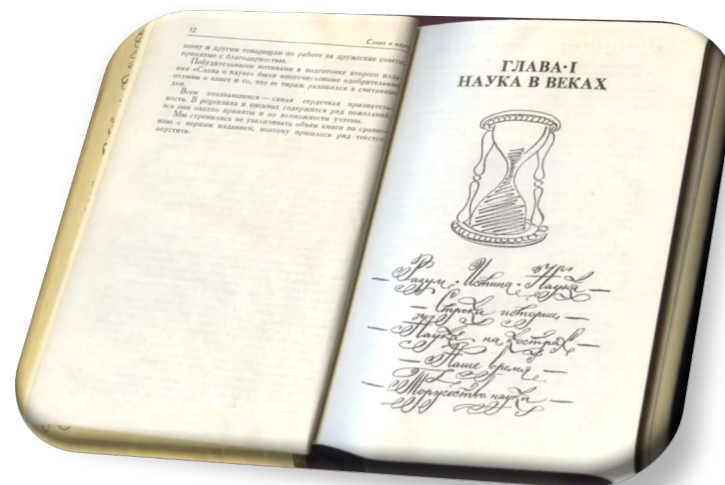 12
Слово о науке
шину и другим товарищам по работе за дружеские советы,
принятые с благодарностью.
Побудительными мотивами к подготовке второго изда-
ния «Слова о науке» были многочисленные одобрительные
отзывы о книге и то, что ее тираж разошелся в считанные
дни.
Всем отозвавшимся — самая сердечная признатель-
ность. В рецензиях и письмах содержится ряд пожеланий,
все они охотно приняты и по возможности учтены.
Мы стремились не увеличивать объем книги по сравне-
нию с первым изданием, поэтому пришлось ряд текстов
опустить.
ГЛАВА·I
НАУКА В ВЕКАХ
— Разум · Истина · Наука —
— Строки истории —
— Наука на кострах —
— Наше время —
— Могущество науки —